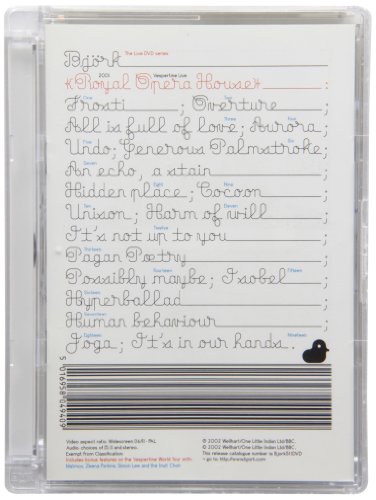 Björk The Live DVD series:
2001 Vespertine Live
«Royal Opera House» :
One Two
Frosti ; Overture :
Three Four
All is full of love; Aurora;
Five Six
Undo; Generous Palmstroke;
Seven
An echo, a stain :
Eight Nine
Hidden place; Cocoon :
Ten Eleven
Unison; Harm of will :
Twelve
It's not up to you :
Thirteen
Pagan Poetry :
Fourteen Fifteen
Possibly maybe; Isobel :
Sixteen
Hyperballad :
Seventeen
Human behaviour :
Eighteen Nineteen
Joga; It's in our hands.
5 016958 049409
Video aspect ratio: Widescreen 16/9 - PAL
Audio: choices of (5.1) and stereo.
Exempt from Classification
Includes bonus features on the Vespertine World Tour with:
Matmos, Zeena Parkins, Simon Lee and the Inuit Choir
℗ 2002 Wellhart/One Little Indian Ltd/BBC.
© 2002 Wellhart/One Little Indian Ltd/BBC.
This release catalogue number is
> go to http://www.bjork.com/